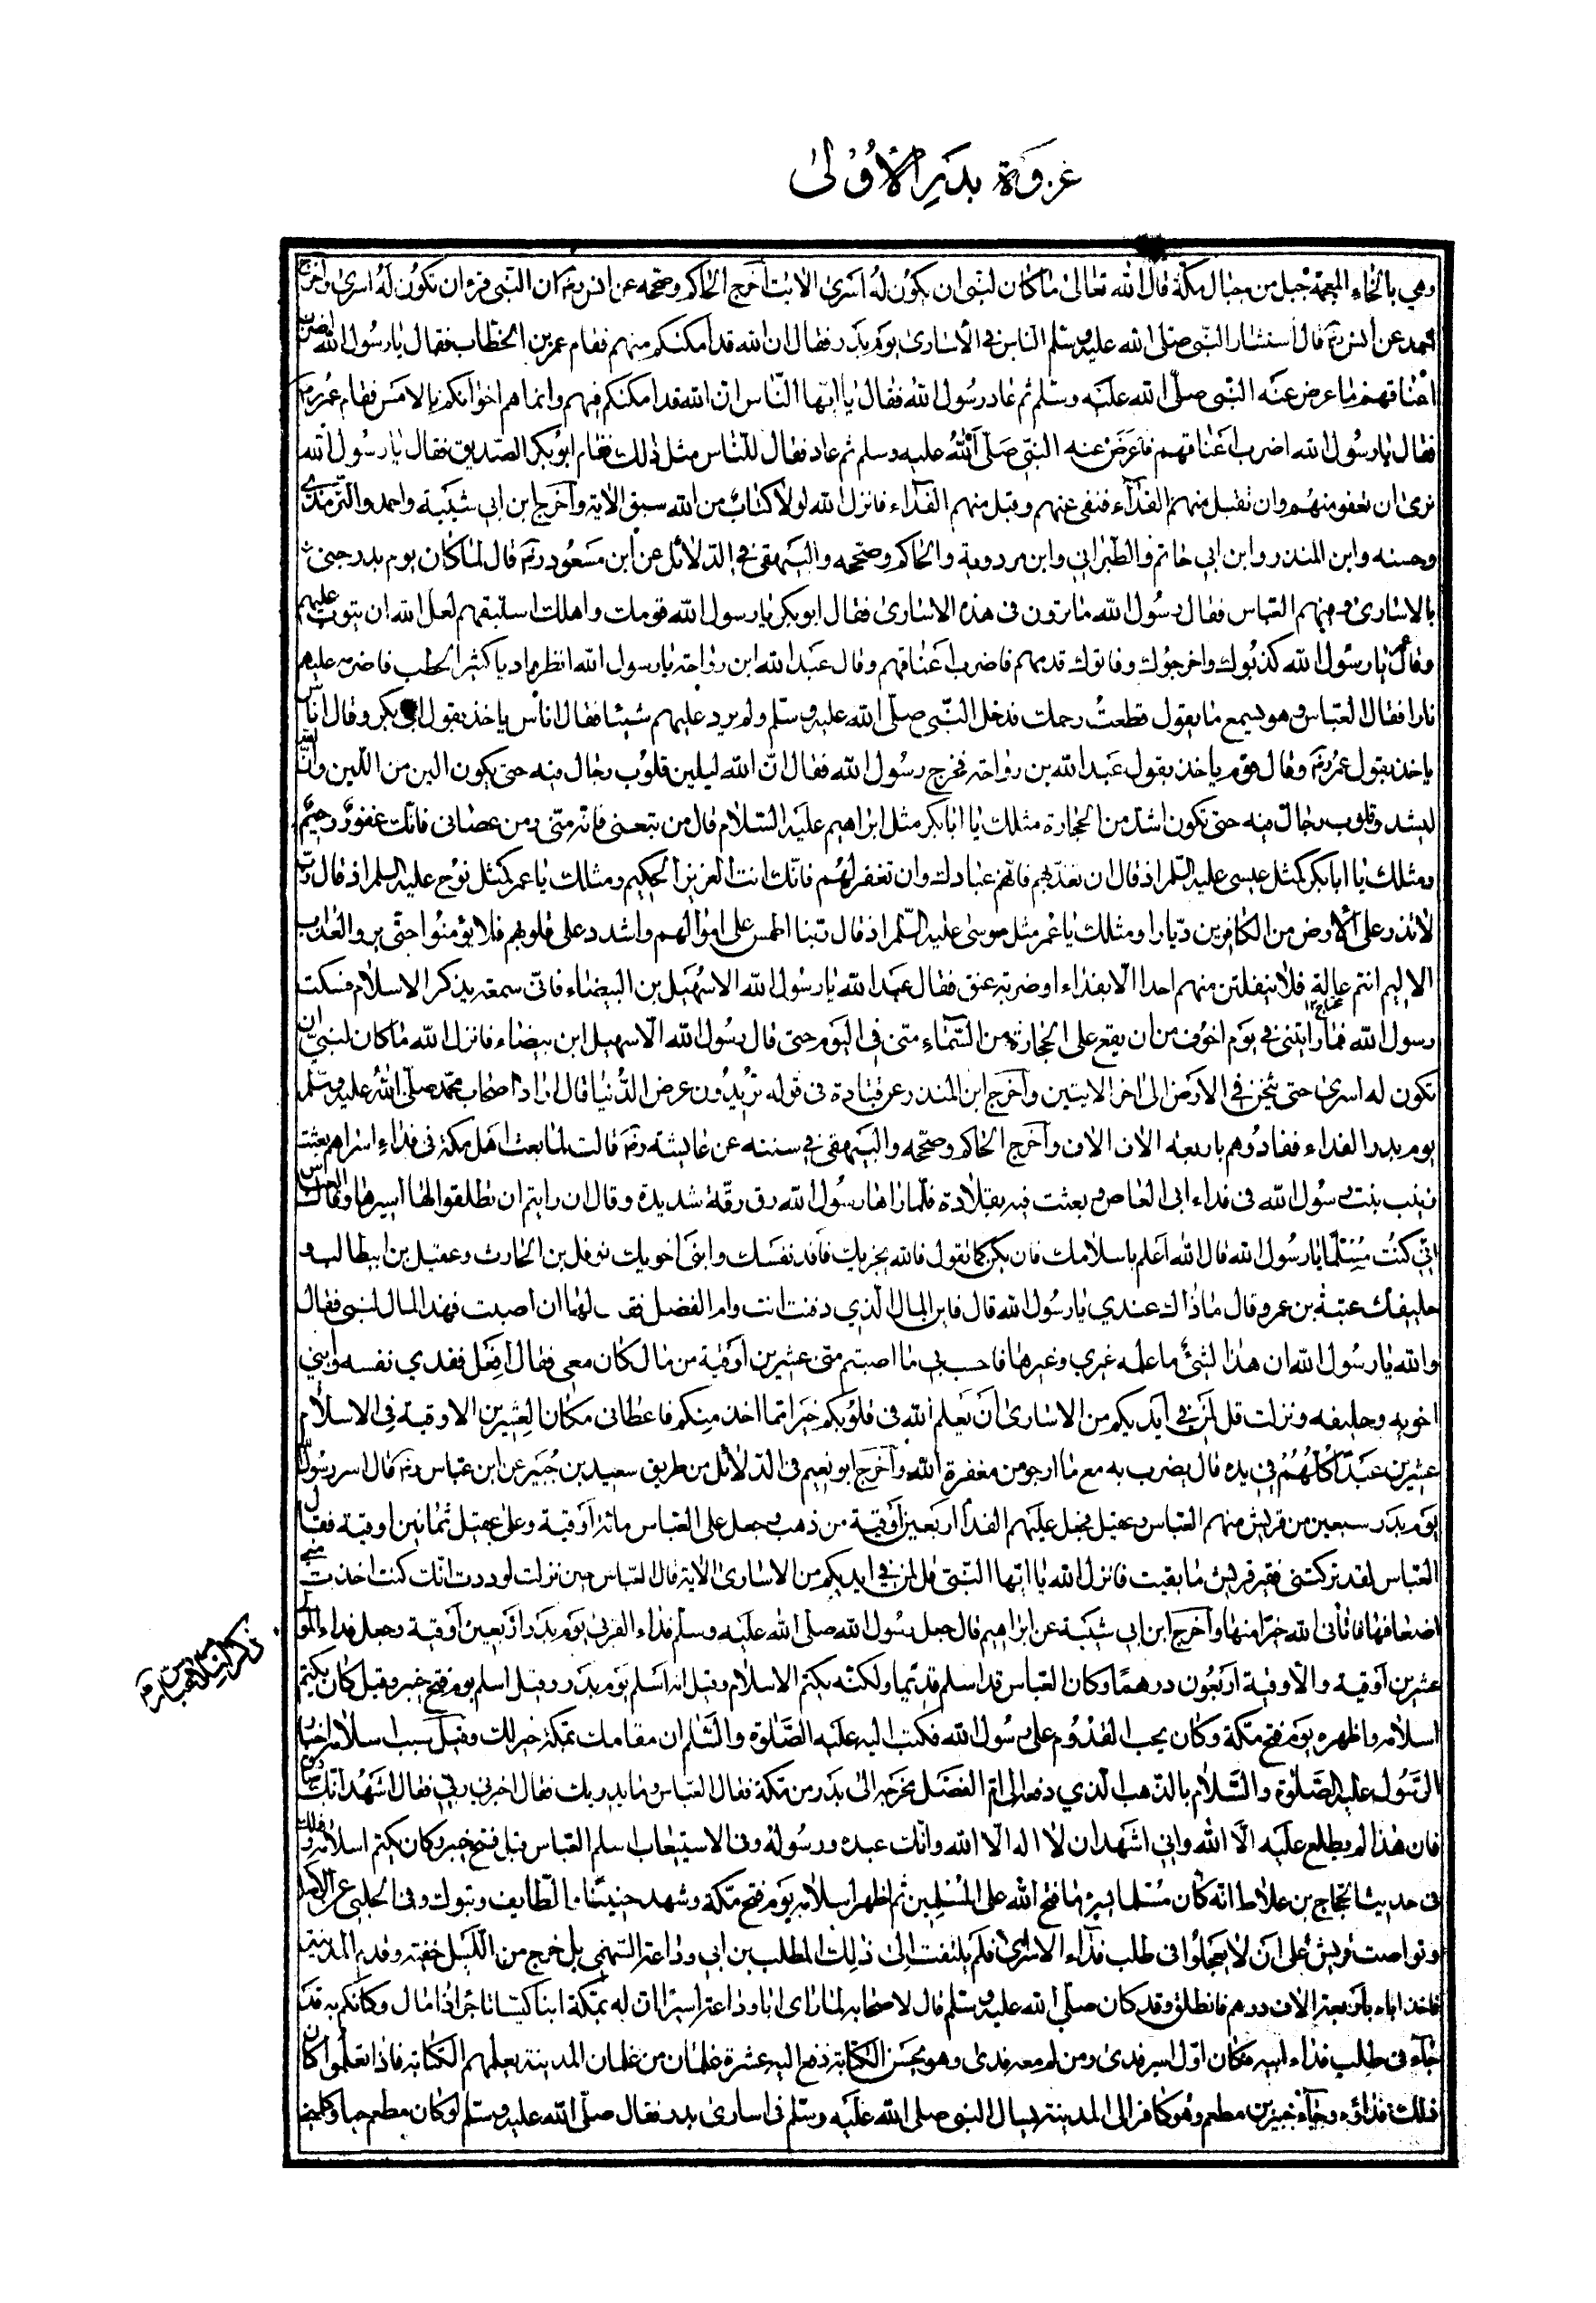 غزوة بدر الأولى
وهي بالخاء المعجمة جبل من جبال مكة قال الله تعالى ما كان لنبى ان يكون له اسرى الايات اخرج الحاكم وصححه عن انس رضـ ان النبى قرء ان تكون له اسرى واخرج
احمد عن انس رضـ قال استشار النبى صلى الله عليه وسلم الناس فى الأسارى يوم بدر فقال ان الله قد امكنكم منهم فقام عمر بن الخطاب فقال يا رسول الله اضرب
اعناقهم فاعرض عنه النبى صلى الله عليه وسلم ثم عاد رسول الله فقال يا ايها الناس ان الله قد امكنكم فيهم وانما هم اخوانكم بالامس فقام عمر رضـ
فقال يا رسول الله اضرب اعناقهم فاعرض عنه النبى صلى الله عليه وسلم ثم عاد فقال للناس مثل ذلك فقام ابو بكر الصديق فقال يا رسول الله
نرى ان تعفو منهم وان تقبل منهم الفداء فعفى عنهم وقبل منهم الفداء فانزل الله لولا كتاب من الله سبق الاية وأخرج ابن ابي شيبة واحمد والترمذى
وحسنه وابن المنذر وابن ابي حاتم والطبراني وابن مردوية والحاكم وصححه والبيهقى فى الدلائل عن ابن مسعود رضـ قال لما كان يوم بدر جئ
بالاسارى ومنهم العباس فقال رسول الله ما ترون فى هذه الاسارى فقال ابو بكر يا رسول الله قومك واهلك استبقهم لعل الله ان يتوب عليهم
وقال عمر يا رسول الله كذبوك واخرجوك وقاتوك قدمهم فاضرب اعناقهم وقال عبد الله ابن رواحة يا رسول الله انظر واديا كثير الحطب فاضرمه عليهم
نارا فقال العباس وهو يسمع ما يقول قطعت رحمك فدخل النبى صلى الله عليه وسلم ولم يرد عليهم شيئا فقال اناس ياخذ بقول ابى بكر وقال اناس
ياخذ بقول عمر رضـ وقال قوم ياخذ بقول عبد الله بن رواحة فخرج رسول الله فقال ان الله ليلين قلوب رجال فيه حتى يكون الين من اللين وان الله
ليشدد قلوب رجال فيه حتى تكون اشد من الحجارة مثلك يا ابا بكر مثل ابراهيم عليه السلام قال من تبعنى فانه منى ومن عصانى فانك غفور رحيم
ومثلك يا ابا بكر كمثل عيسى عليه السلم اذ قال ان تعذبهم فانهم عبادك وان تغفر لهم فانك انت العزيز الحكيم ومثلك يا عمر كمثل نوح عليه السلم اذ قال رب
لا تذر على الأرض من الكافرين ديارا ومثلك يا عمر مثل موسى عليه السلم اذ قال ربنا اطمس على اموالهم واشدد على قلوبهم فلا يؤمنوا حتى يروا العذاب
الاليم انتم عالة فلا ينفلتن منهم احدا الا بفداء او ضربة عنق فقال عبد الله يا رسول الله الا سهيل بن البيضاء فانى سمعته يذكر الاسلام فسكت
رسول الله فما رايتنى فى يوم اخوف من ان يقع على الحجارة من السماء منى فى اليوم حتى قال رسول الله الا سهيل ابن بيضاء فانزل الله ما كان لنبى ان
تكون له اسرى حتى يثخن فى الارض الى اخر الايتين وأخرج ابن المنذر عن قتادة فى قوله تريدون عرض الدنيا قال اراد اصحاب محمد صلى الله عليه وسلم
يوم بدر الفداء ففادوهم باربعة الاف الاف وأخرج الحاكم وصححه والبيهقى فى سننه عن عايشة رضـ قالت لما بعث اهل مكة فى فداء اسراهم بعثت
زينب بنت رسول الله فى فداء ابى العاص وبعثت فيه بقلادة فلما راها رسول الله رق رقة شديدة وقال ان رايتم ان تطلقوا لها اسيرها وقال العباس
اني كنت مسلما يا رسول الله قال الله أعلم باسلامك فان يكن كما تقول فالله يجزيك فافد نفسك وابنى اخويك نوفل بن الحارث وعقيل بن ابيطالب و
حليفك عتبة بن عمرو قال ما ذاك عندي يا رسول الله قال فاين المال الذي دفنت انت وام الفضل فقـ لها ان اصبت فهذا المال لبنى فقال
والله يا رسول الله ان هذا لشئ ما علمه غيري وغيرها فاحسب بي ما اصبتم منى عشرين اوقية من مال كان معى فقال افعل ففدي نفسه وابني
اخويه وحليفه ونزلت قل لمن فى أيديكم من الاسارى ان يعلم الله فى قلوبكم خيرا مما اخذ منكم فاعطانى مكان العشرين الاوقية فى الاسلام
عشرين عبدا كلهم فى يده مال يضرب به مع ما ارجو من مغفرة الله وأخرج ابو نعيم فى الدلائل من طريق سعيد بن جبير عن ابن عباس رضـ قال اسر رسول الله
يوم بدر سبعين من قريش منهم العباس وعقيل فجعل عليهم الفدا اربعين أوقية من ذهب وجعل على العباس مائة أوقية وعلى عقيل ثمانين اوقية فقال
العباس لقد تركتنى فقير قريش ما بقيت فانزل الله يا ايها النبى قل لمن فى ايديكم من الاسارى الاية قال العباس حين نزلت لوددت انك كنت اخذت منى
اضعافها فاتانى الله خيرا منها وأخرج ابن ابي شيبة عن ابراهيم قال جعل رسول الله صلى الله عليه وسلم فداء العربى يوم بدر اربعين أوقية وجعل فداء المولى
عشرين أوقية والأوقية اربعون درهما وكان العباس قد اسلم قديما ولكنه يكتم الاسلام وقيل انه اسلم يوم بدر وقيل اسلم يوم فتح خيبر وقيل كان يكتم
اسلامه واظهره يوم فتح مكة وكان يحب القدوم على رسول الله فكتب اليه عليه الصلوة والسلم ان مقامك بمكة خير لك وقيل سبب اسلامه اخبار
الرسول عليه الصلوة والسلام بالذهب الذي دفعه الى ام الفضل مخرجه الى بدر من مكة فقال العباس وما يدريك فقال اخبرنى ربي فقال اشهد انك صادق
فان هذا لم يطلع عليه الا الله واني اشهد ان لا اله الا الله وانك عبده ورسوله وفى الاستيعاب اسلم العباس قبل فتح خيبر وكان يكتم اسلامه وذلك
فى حديث الحجاج بن علاط انه كان مسلما يسره ما فتح الله على المسلمين ثم اظهر اسلامه يوم فتح مكة وشهد حنينا والطايف وتبوك وفى الحلبي
وتواصت قريش على ان لا يعجلوا فى طلب فداء الاسرى فلم يلتفت الى ذلك المطلب بن ابي وداعة السهمى بل خرج من الليل خفية وقدم المدينة
فاخذ اباه باربعة الاف درهم فانطلق وقد كان صلى الله عليه وسلم قال لاصحابه لما راى ابا وداعة اسيرا ان له بمكة ابنا كيسا تاجرا ذا مال وكانكم به قد
جاء فى طلب فداء ابيه فكان اول اسير فدى ومن لم معه فدى وهو يحسن الكتابة دفع اليه عشرة غلمان من غلمان المدينة يعلمهم الكتابة فاذا تعلموا كان
ذلك فداؤه وجاء جبير بن مطعم وهو كافر الى المدينة يسال النبى صلى الله عليه وسلم فى اسارى بدر فقال صلى الله عليه وسلم لو كان مطعم حيا وكلمنى
ذكر اسلام عباس رضـ